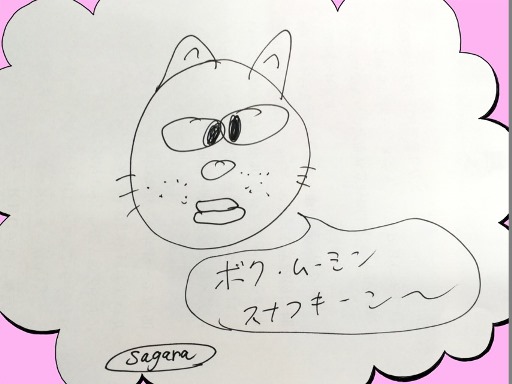 ボク・ムーミン
スナフキーン〜
sagara